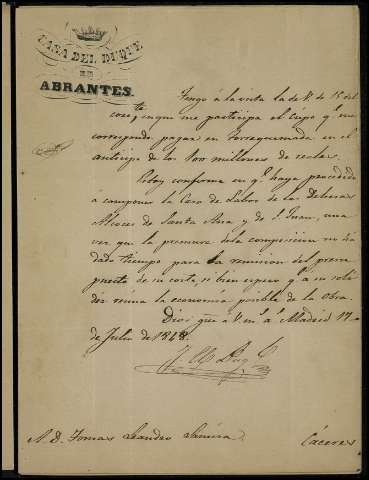 CASA DEL DUQUE
DE
ABRANTES.
Tengo á la vista la de V. de 15 del
corrte, en que me participa el cupo q.e me
corresponde pagar en Torrequemada en el
anticipo de los 100 millones de reales.
Estoy conforme en q.e haya procedido
á componer la Casa de Labor de la Dehesa
Alcores de Santa Ana y de S. Juan, una
vez que la premura de la composicion no ha
dado tiempo para la remision del presu
puesto de su coste, si bien espero q.e á su soli
déz reuna la economía posible de la obra.
Dios gue á V. m.s a.s Madrid 17
de Julio de 1848.
S. D. Tomas Leandro
Cáceres